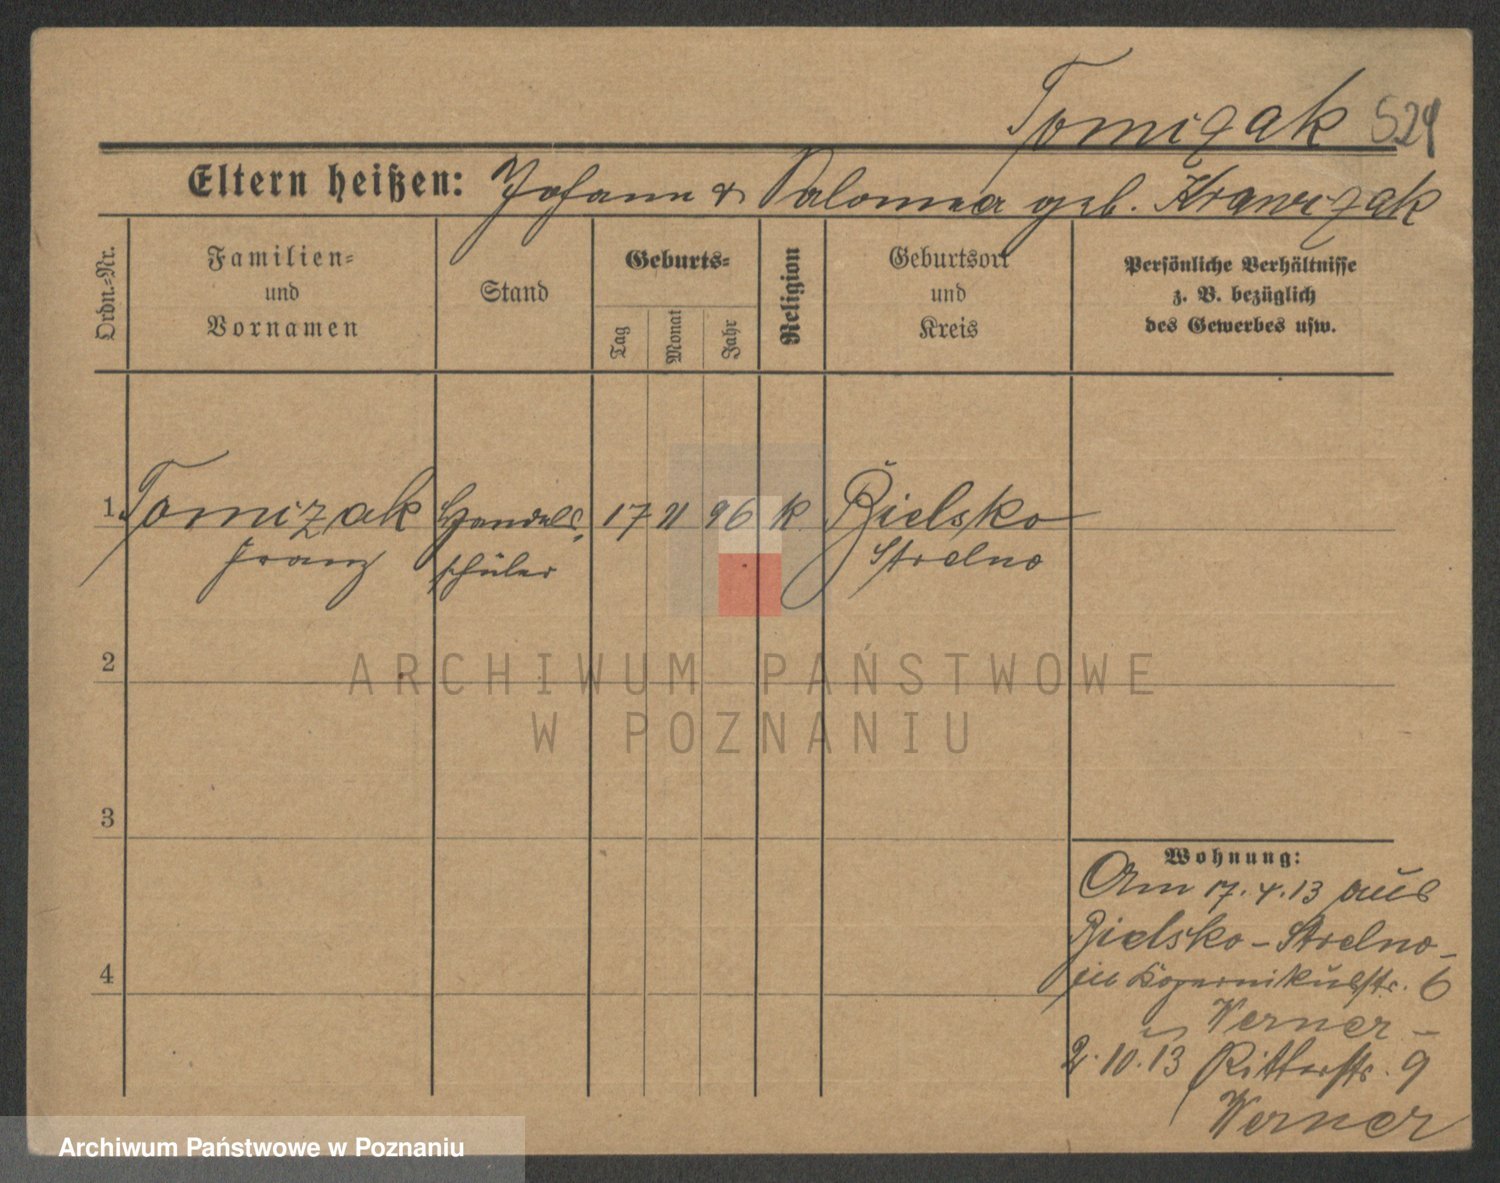 Tomizak 524
Eltern heißen: Johann & Salomea geb. Krawczak
Ordn.-Nr.
Familien=
und
Vornamen
Stand
Geburts=
Tag
Monat
Jahr
Religion
Geburtsort
und
Kreis
Persönliche Verhältnisse
z. B. bezüglich
des Gewerbes usw.
1 Tomizak Handels 17 11 96 K. Bielsko
Franz schüler Strelno
2
ARCHIWUM PAŃSTWOWE
W POZNANIU
3
4
Wohnung:
Am 17.4.13 aus
Bielsko-Strelno-
in Kopernikusstr. 6
Werner-
2.10.13 Ritterstr. 9
Werner
Archiwum Państwowe w Poznaniu